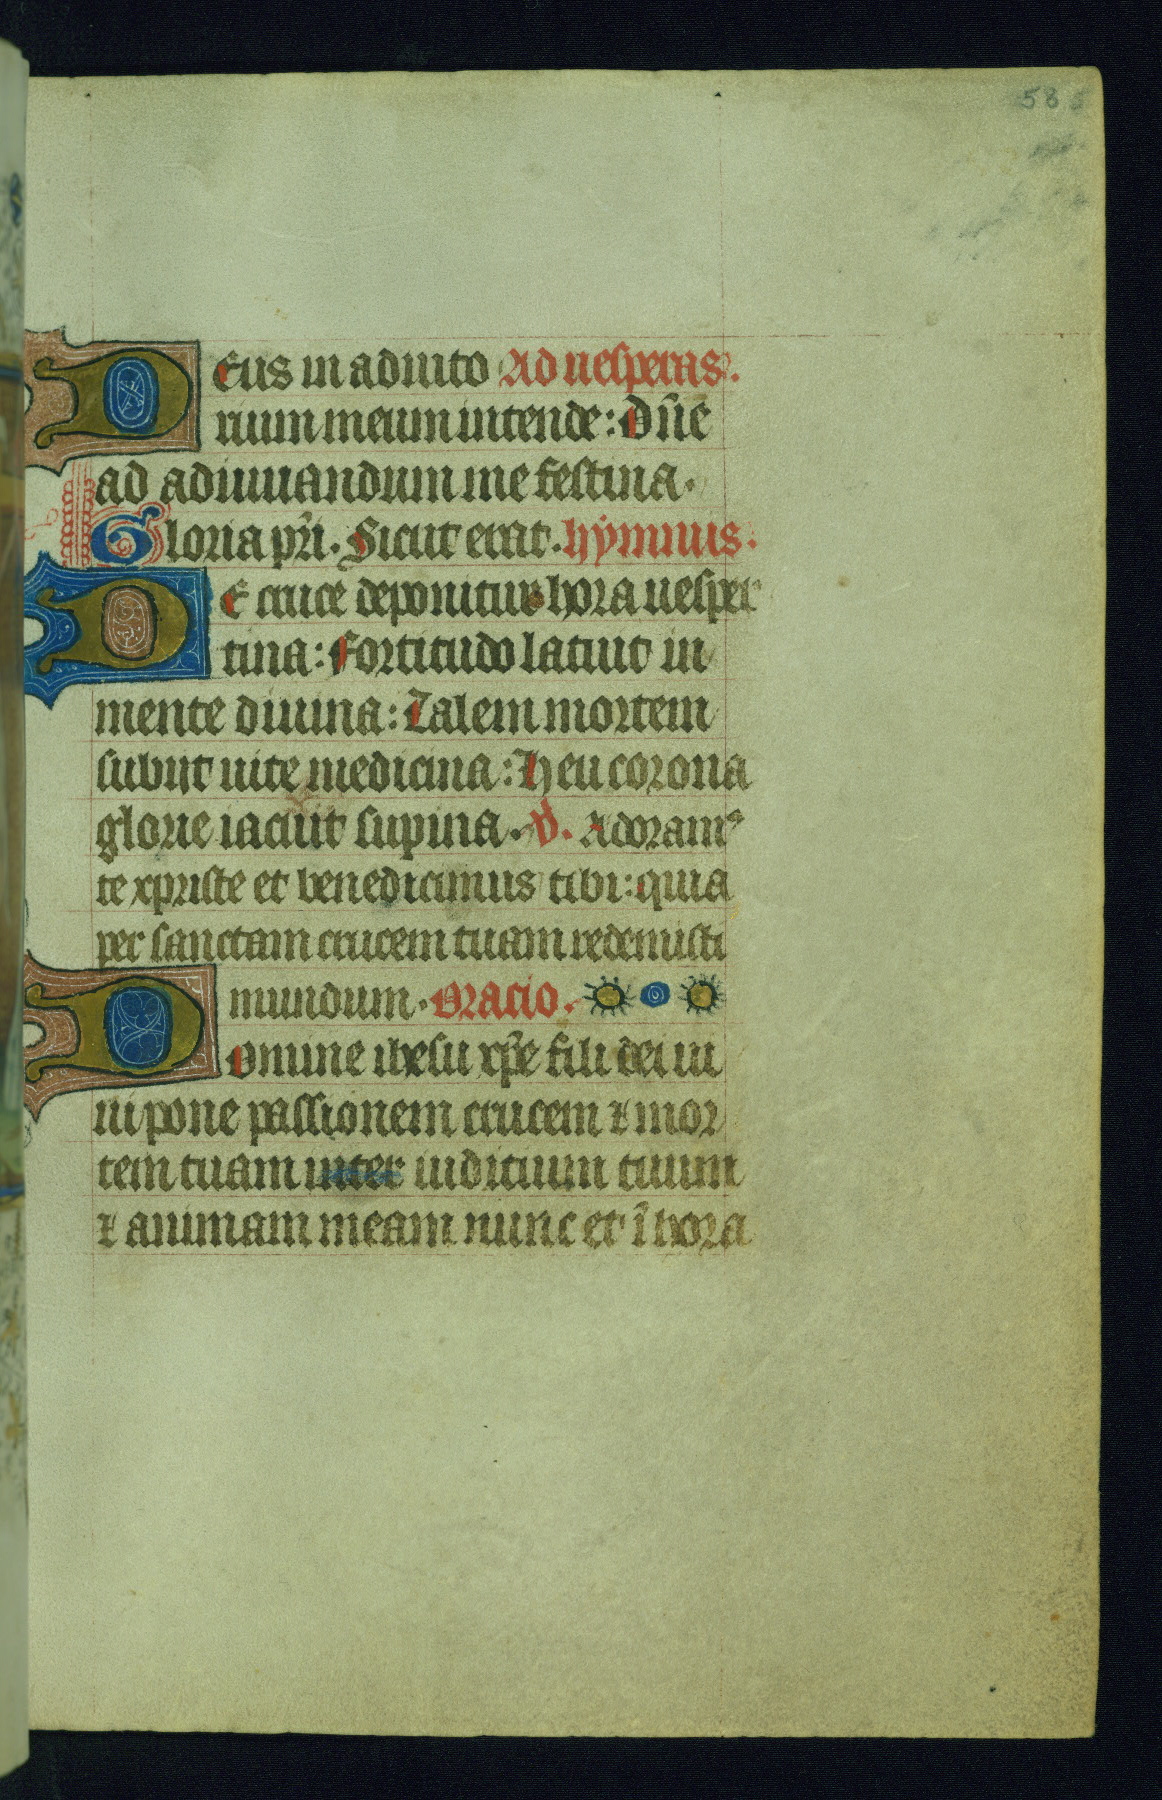 58
Deus in adiuto Ad uesperas.
rium meum intende: Dñe
ad adiuuandum me festina.
Gloria pr̃i. Sicut erat. hỹmnus.
De cruce deponitur hora uesper
tina: Fortitudo latuit in
mente diuina: Talem mortem
subijt uite medicina: Heu corona
glorie iacuit supina. V. Adoram᷒
te xpriste et benedicimus tibi: quia
per sanctam crucem tuam redemisti
mundum. Oracio.
Domine ihesu xp̃e fili dei ui
ui pone passionem crucem ⁊ mor
tem tuam inter iudicium tuum
⁊ animam meam nunc et ĩ hora